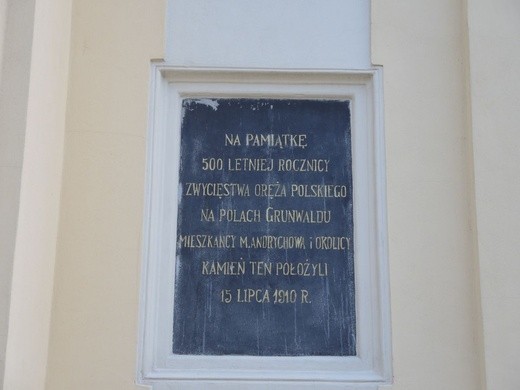 NA PAMIĄTKĘ
500 LETNIEJ ROCZNICY
ZWYCIĘSTWA ORĘŻA POLSKIEGO
NA POLACH GRUNWALDU
MIESZKAŃCY M.ANDRYCHOWA i OKOLICY
KAMIEŃ TEN POŁOŻYLI
15 LIPCA 1910 R.